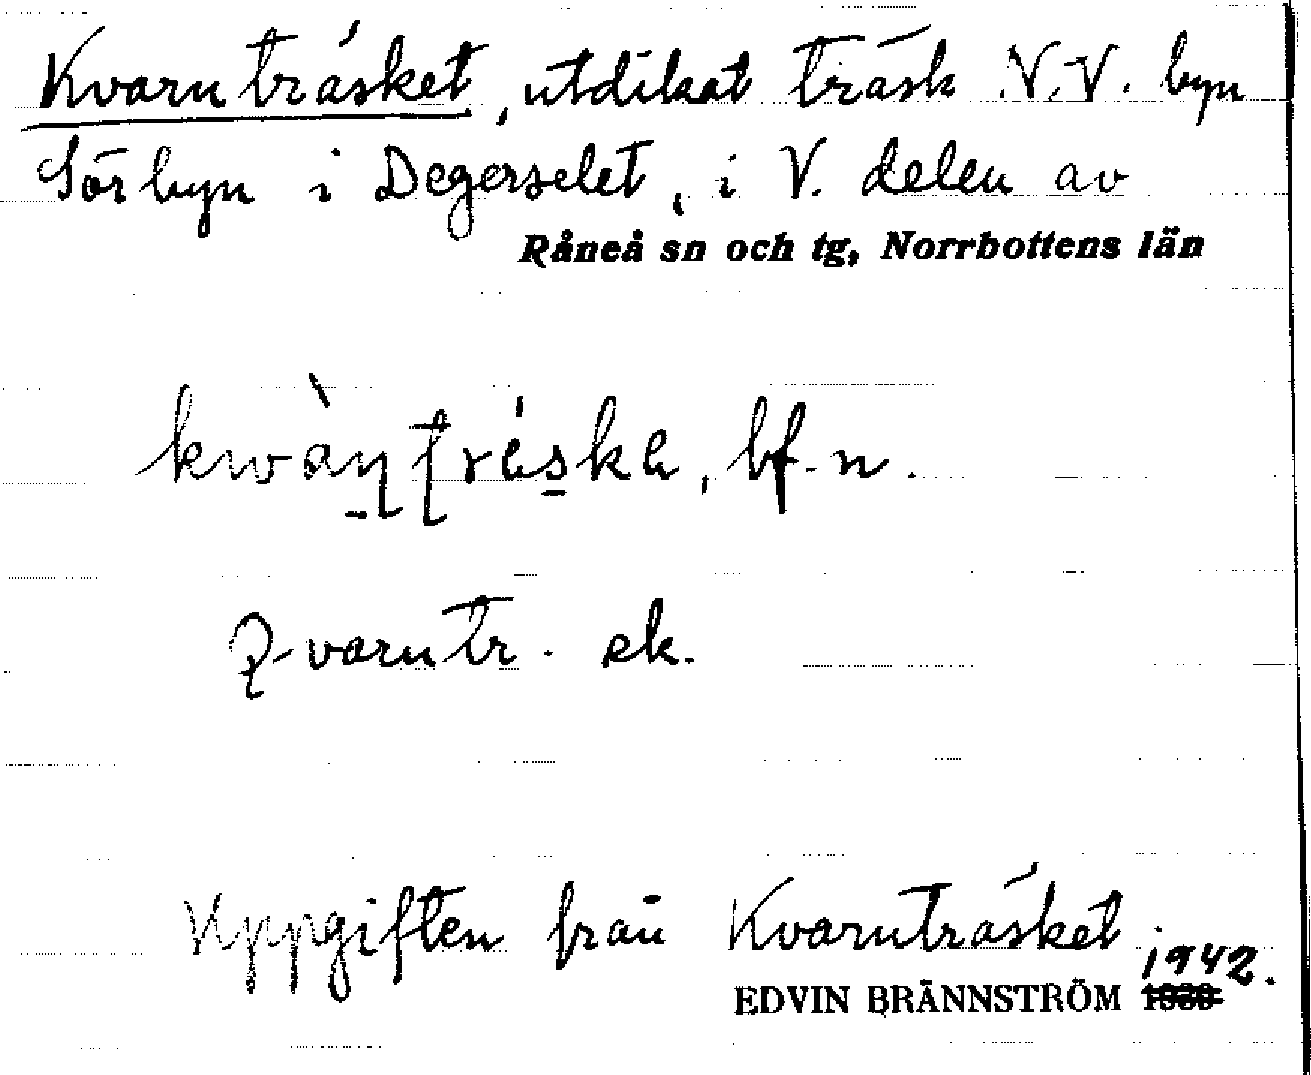 Kvarnträsket, utdikat träsk N.V. byn
Sörbyn i Degerselet, i V. delen av
Råneå sn och tg, Norrbottens län
bf. n.
Qvarntr. ek.
Uppgiften från Kvarnträsket
1942.
EDVIN BRÄNNSTRÖM 1930